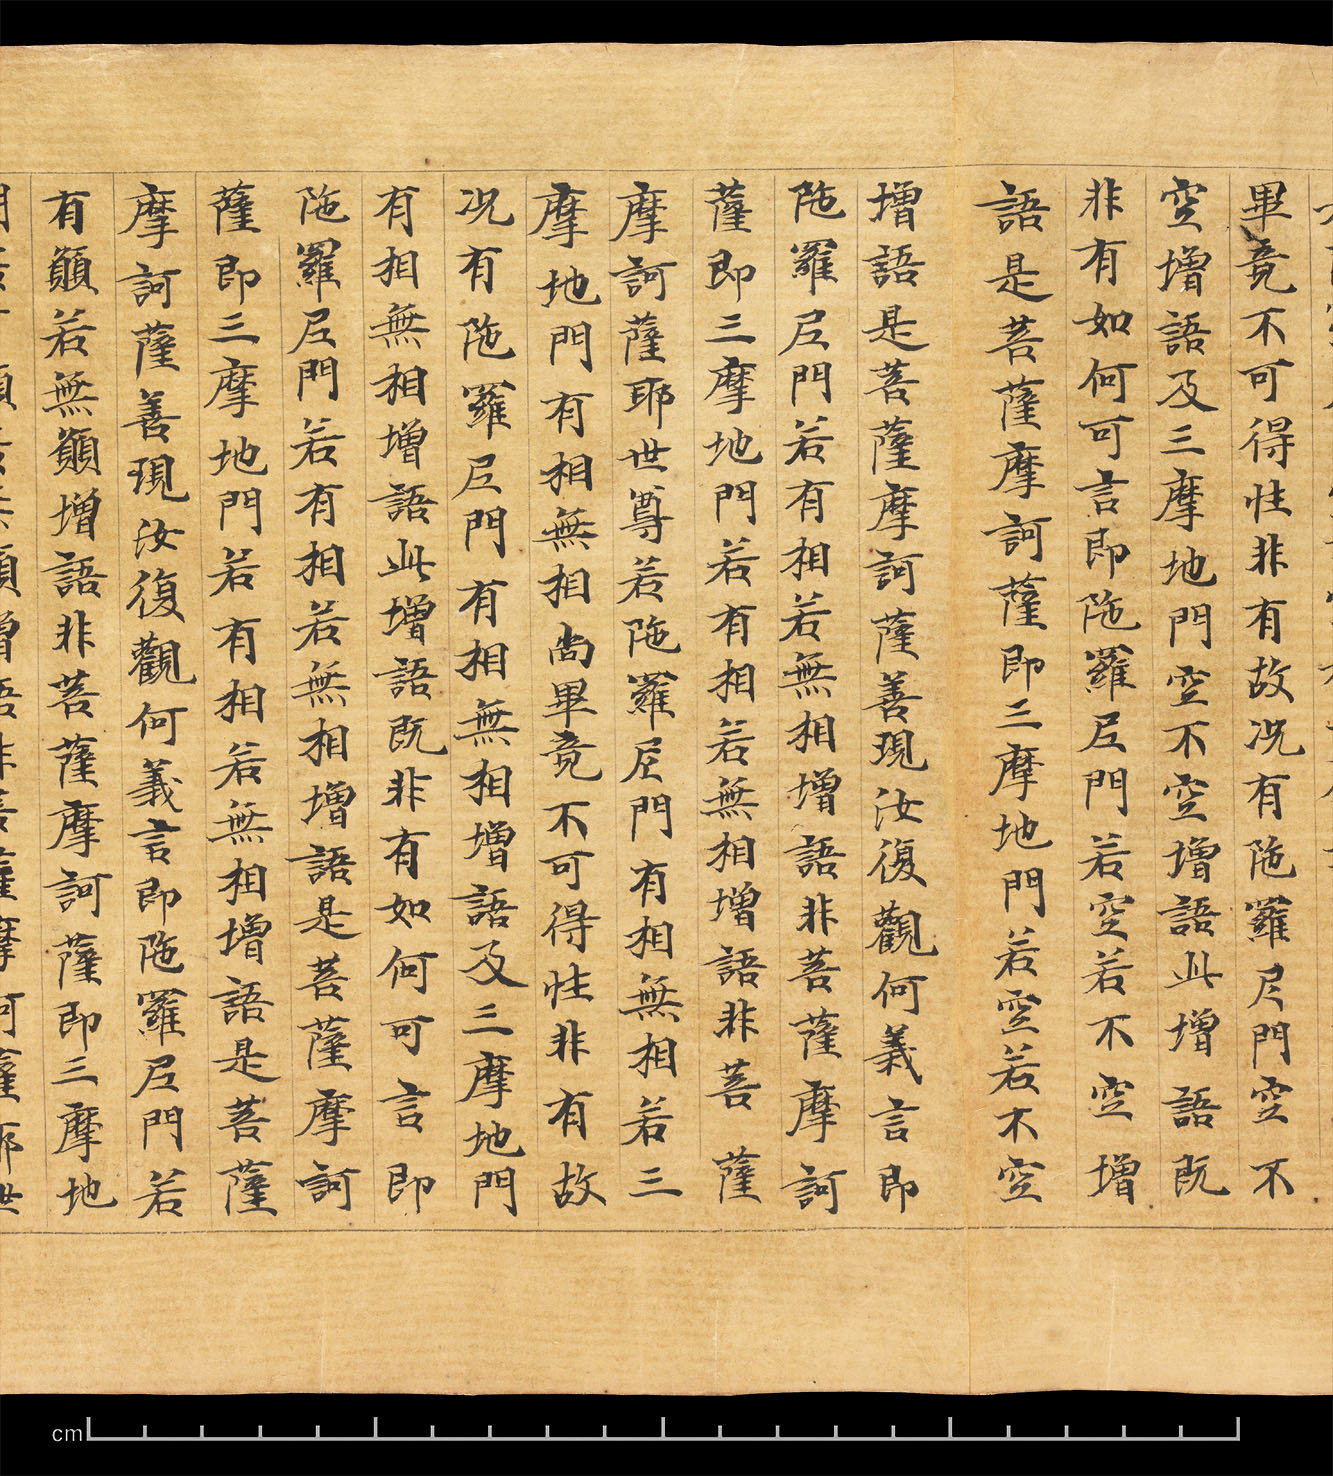 畢竟不可得性非有故况有陁羅尼門空不
空增語及三摩地門空不空增語此增語既
非有如何可言即陁羅尼門若空若不空增
語是菩薩摩訶薩即三摩地門若空若不空
增語是菩薩摩訶薩善現汝復觀何義言即
陁羅尼門若有相若無相增語非菩薩摩訶
薩即三摩地門若有相若無相增語非菩薩
摩訶薩耶世尊若陁羅尼門有相無相若三
摩地門有相無相尚畢竟不可得性非有故
况有陁羅尼門有相無相增語及三摩地門
有相無相增語此增語既非有如何可言即
陁羅尼門若有相若無相增語是菩薩摩訶
薩即三摩地門若有相若無相增語是菩薩
摩訶薩善現汝復觀何義言即陁羅尼門若
有願若無願增語非菩薩摩訶薩即三摩地